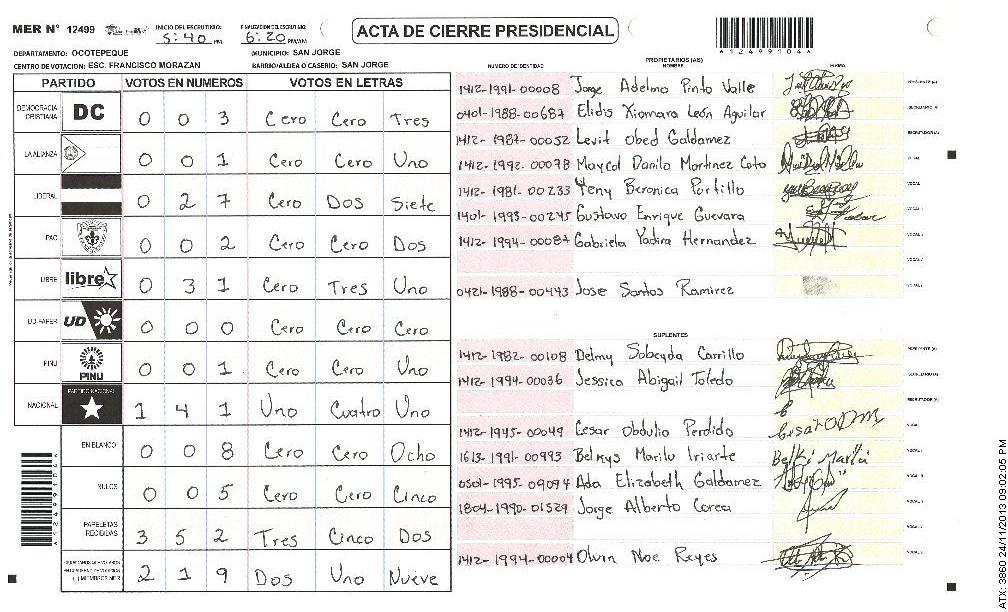 MER N° 12499
INICIO DEL ESCRUTINIO: 5:40 PM
FINALIZACION DEL ESCRUTINIO: 6:20 PM/AM
ACTA DE CIERRE PRESIDENCIAL
DEPARTAMENTO: OCOTEPEQUE
MUNICIPIO: SAN JORGE
CENTRO DE VOTACION: ESC. FRANCISCO MORAZAN
BARRIO/ALDEA O CASERIO: SAN JORGE
PARTIDO VOTOS EN NUMEROS VOTOS EN LETRAS
DEMOCRACIA CRISTIANA DC 0 0 3 Cero Cero Tres
LA ALIANZA 0 0 1 Cero Cero Uno
LIBERAL 0 2 7 Cero Dos Siete
PAC 0 0 2 Cero Cero Dos
LIBRE libre 0 3 1 Cero Tres Uno
UD-FAPER UD 0 0 0 Cero Cero Cero
PINU PINU 0 0 1 Cero Cero Uno
NACIONAL PARTIDO NACIONAL 1 4 1 Uno Cuatro Uno
EN BLANCO 0 0 8 Cero Cero Ocho
NULOS 0 0 5 Cero Cero Cinco
PAPELETAS RECIBIDAS 3 5 2 Tres Cinco Dos
(+) MIEMBROS MER 2 1 9 Dos Uno Nueve
PROPIETARIOS (AS)
NUMERO DE IDENTIDAD NOMBRE FIRMA
1412-1991-00008 Jorge Adelmo Pinto Valle
0401-1988-00687 Elidis Xiomara León Aguilar
1412-1987-00052 Levit Obed Galdamez
1412-1992-00078 Maycol Danilo Martinez Coto
1412-1981-00233 Yeny Beronica Portillo
1401-1993-00245 Gustavo Enrique Guevara
1412-1994-00087 Gabriela Yadira Hernandez
0421-1988-00493 Jose Santos Ramirez
SUPLENTES
1412-1982-00108 Delmy Sobeyda Carrillo
1412-1994-00036 Jessica Abigail Toledo
1412-1945-00049 Cesar Obdulio Perdido
1613-1991-00993 Belkys Marilu Iriarte
0501-1995-09094 Ada Elizabeth Galdamez
1804-1990-01529 Jorge Alberto Corea
1412-1994-00004 Olvin Noe Reyes
ATX: 3860 24/11/2013 09:02:05 PM